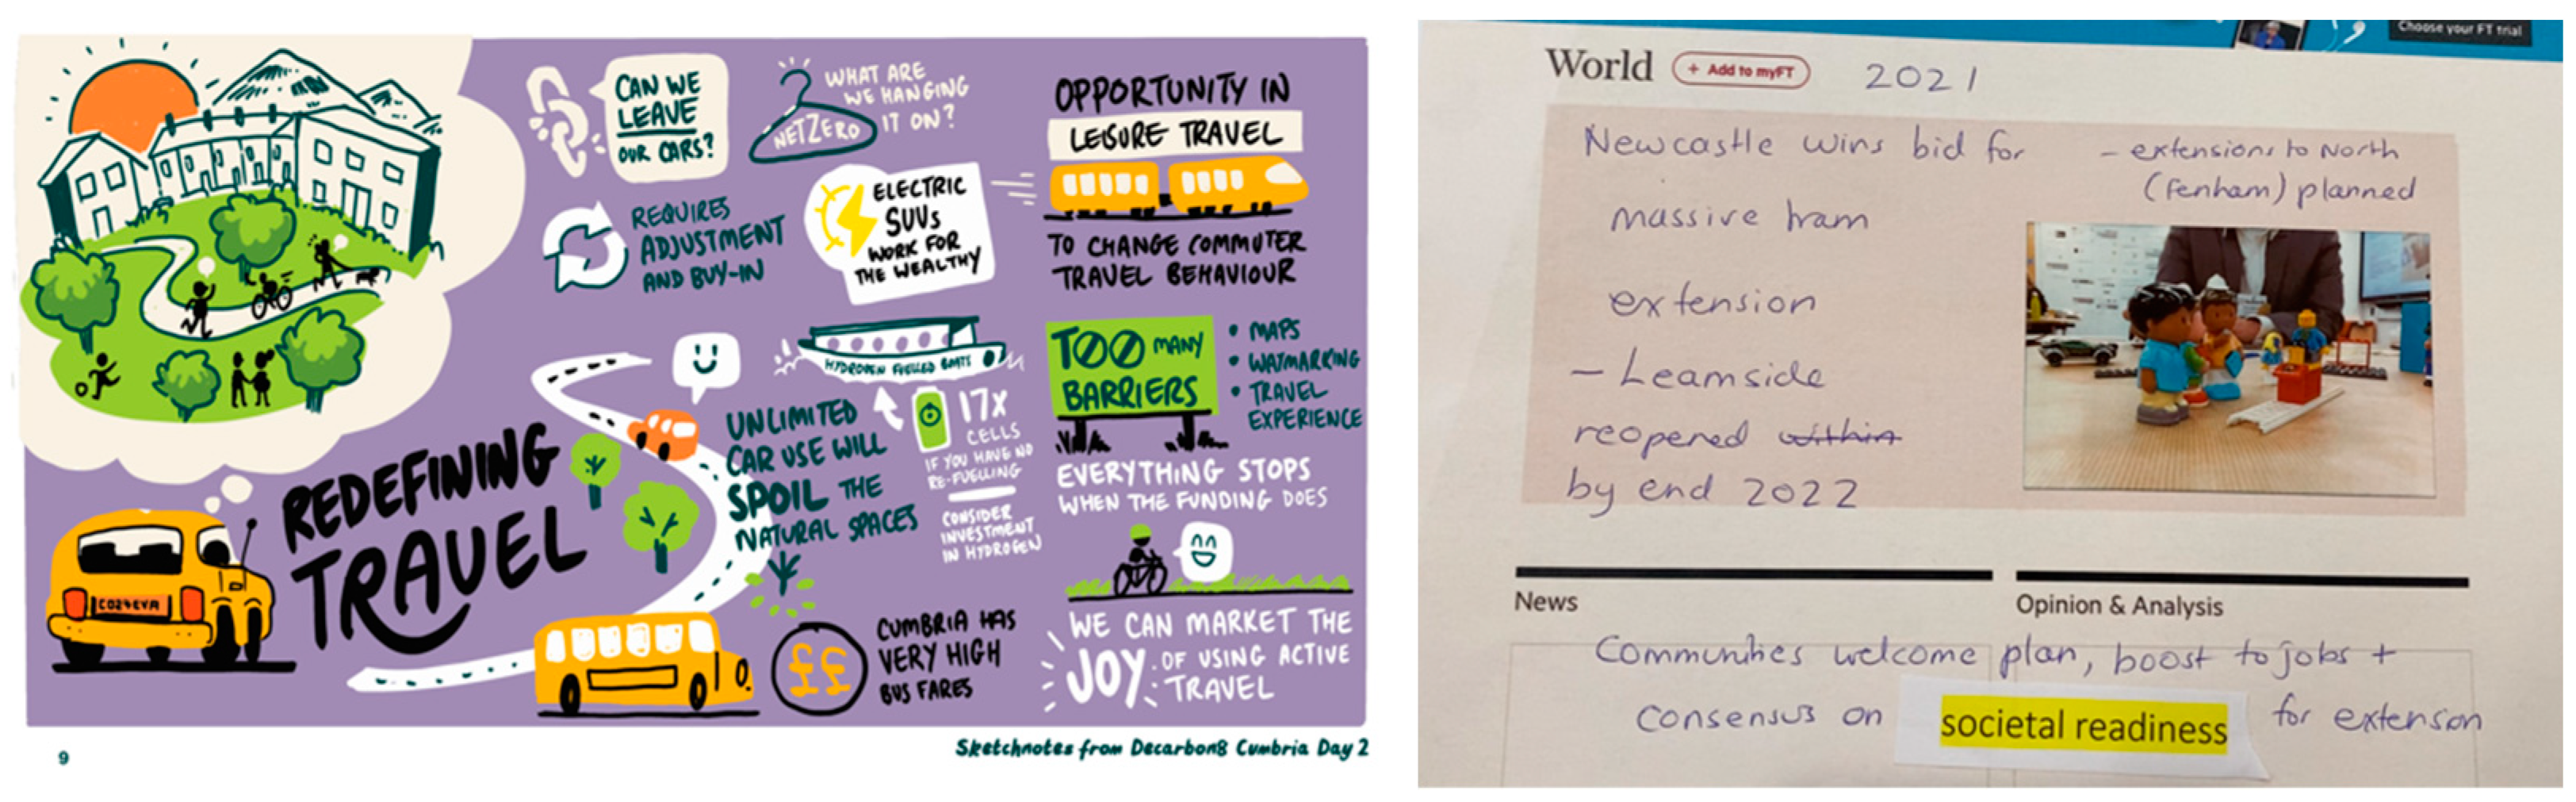 CAN WE
LEAVE
OUR CARS?
WHAT ARE
WE HANGING
IT ON?
NETZERO
REQUIRES
ADJUSTMENT
AND BUY-IN
ELECTRIC
SUVs
WORK FOR
THE WEALTHY
OPPORTUNITY IN
LEISURE TRAVEL
TO CHANGE COMMUTER
TRAVEL BEHAVIOUR
REDEFINING
TRAVEL
CO24EVA
UNLIMITED
CAR USE WILL
SPOIL THE
NATURAL SPACES
HYDROGEN FUELLED BOATS
17X
CELLS
IF YOU HAVE NO
RE-FUELLING
CONSIDER
INVESTMENT
IN HYDROGEN
TOO MANY
BARRIERS
• MAPS
• WAYMARKING
• TRAVEL
EXPERIENCE
EVERYTHING STOPS
WHEN THE FUNDING DOES
££
CUMBRIA HAS
VERY HIGH
BUS FARES
WE CAN MARKET THE
JOY OF USING ACTIVE
TRAVEL
9
Sketchnotes from Decarbon8 Cumbria Day 2
Choose your FT trial
World + Add to myFT 2021
Newcastle wins bid for
massive tram
extension
- Leamside
reopened within
by end 2022
- extensions to North
(Fenham) planned
News
Opinion & Analysis
Communities welcome plan, boost to jobs +
consensus on societal readiness for extension